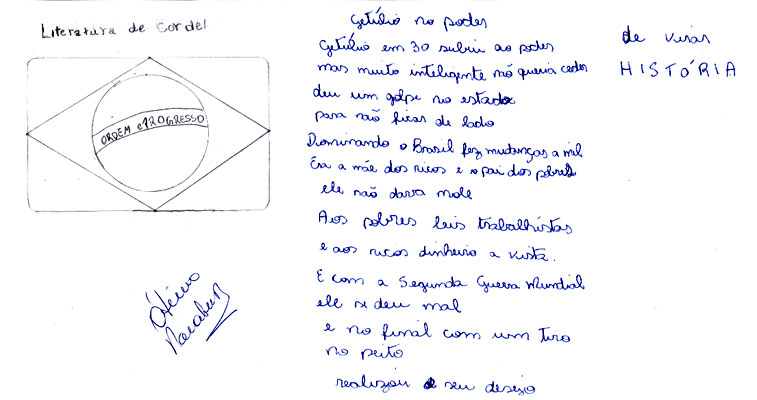 Literatura de Cordel
ORDEM e PROGRESSO
Ótimo
Parabéns
Getúlio no poder
Getúlio em 30 subiu ao poder
mas muito inteligente não queria ceder
deu um golpe no estado
para não ficar de lado
Dominando o Brasil fez mudanças a mil
Era a mãe dos ricos e o pai dos pobres
ele não dava mole
Aos pobres leis trabalhistas
e aos ricos dinheiro a vista.
E com a Segunda Guerra Mundial
ele se deu mal
e no final com um tiro
no peito
realizou o seu desejo
de virar
HISTÓRIA